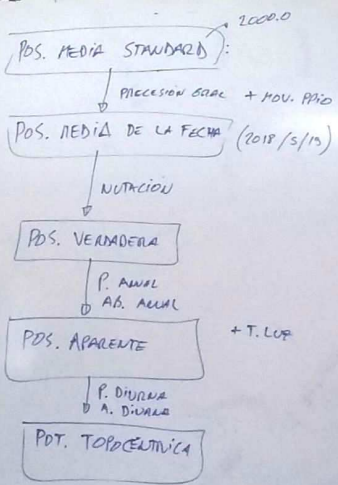 2000.0
POS. MEDIA STANDARD :
PRECESIÓN GRAL + MOV. PPIO
POS. MEDIA DE LA FECHA (2018/5/19)
NUTACIÓN
POS. VERDADERA
P. ANUAL
AB. ANUAL
POS. APARENTE + T. LUZ
P. DIURNA
A. DIURNA
POT. TOPOCÉNTRICA